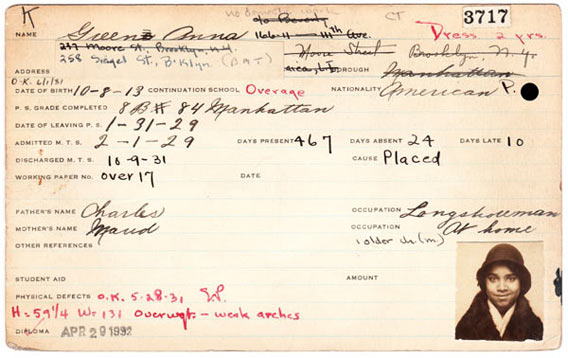 K no domestic work CT 3717
c/o Beverly Dress 2 yrs.
NAME Greene Anna 166-11 - 111th Ave.
237 Moore St., Brooklyn, N.Y. Moore Street Brooklyn, N.Y.
258 Siegel St., B'klyn (BMT) BOROUGH Manhattan
ADDRESS
O.K. 6/1/31
DATE OF BIRTH 10-8-13 CONTINUATION SCHOOL Overage NATIONALITY American P.
P. S. GRADE COMPLETED 8B # 84 Manhattan
DATE OF LEAVING P. S. 1-31-29
ADMITTED M. T. S. 2-1-29 DAYS PRESENT 467 DAYS ABSENT 24 DAYS LATE 10
DISCHARGED M. T. S. 10-9-31 CAUSE Placed
WORKING PAPER NO. over 17 DATE
FATHER'S NAME Charles OCCUPATION Longshoreman
MOTHER'S NAME Maud OCCUPATION At home
OTHER REFERENCES 1 older ch. (m)
STUDENT AID AMOUNT
PHYSICAL DEFECTS O.K. 5-28-31
H = 59 1/4 W = 131 Overwgt. - weak arches
DIPLOMA APR 29 1932